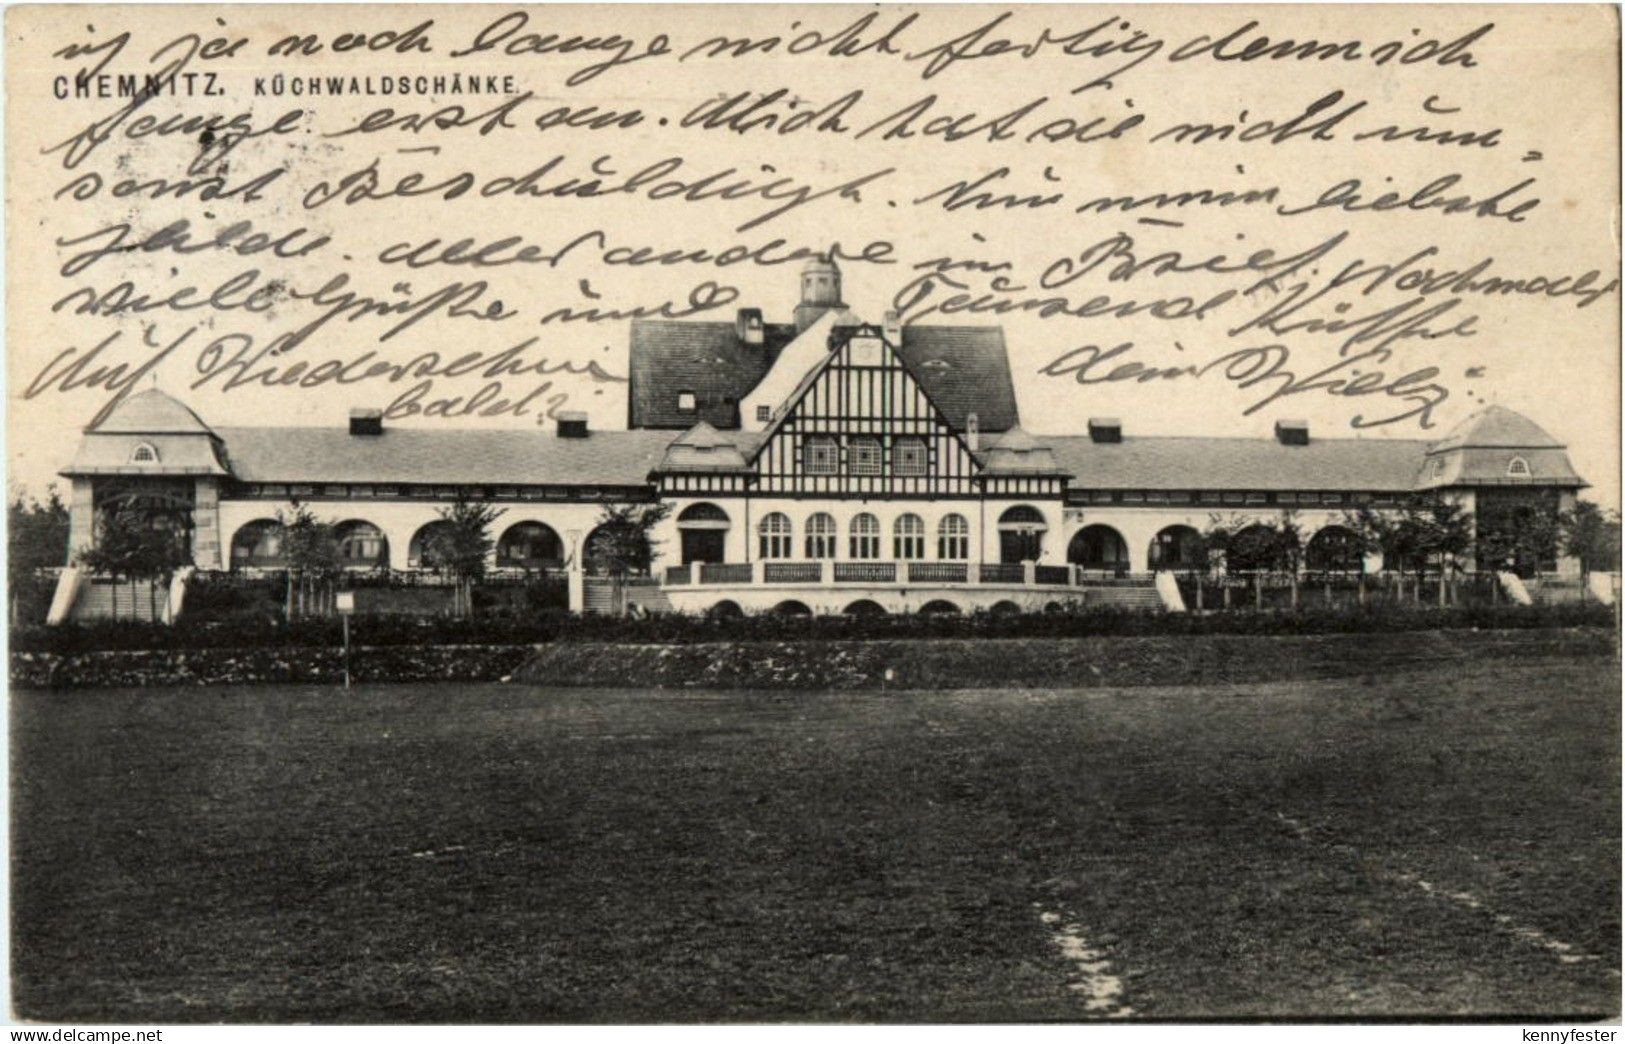 ist ja noch lange nicht fertig denn ich
CHEMNITZ. KÜCHWALDSCHÄNKE.
fange erst an. Mich hat sie nicht um-
sonst Beschuldigt. Nun mein liebste
Hilde. Alles andere im Brief. Nochmals
viele Grüße und Tausend Küsse
Auf Wiedersehn dein Willy.
bald?
www.delcampe.net
kennyfester